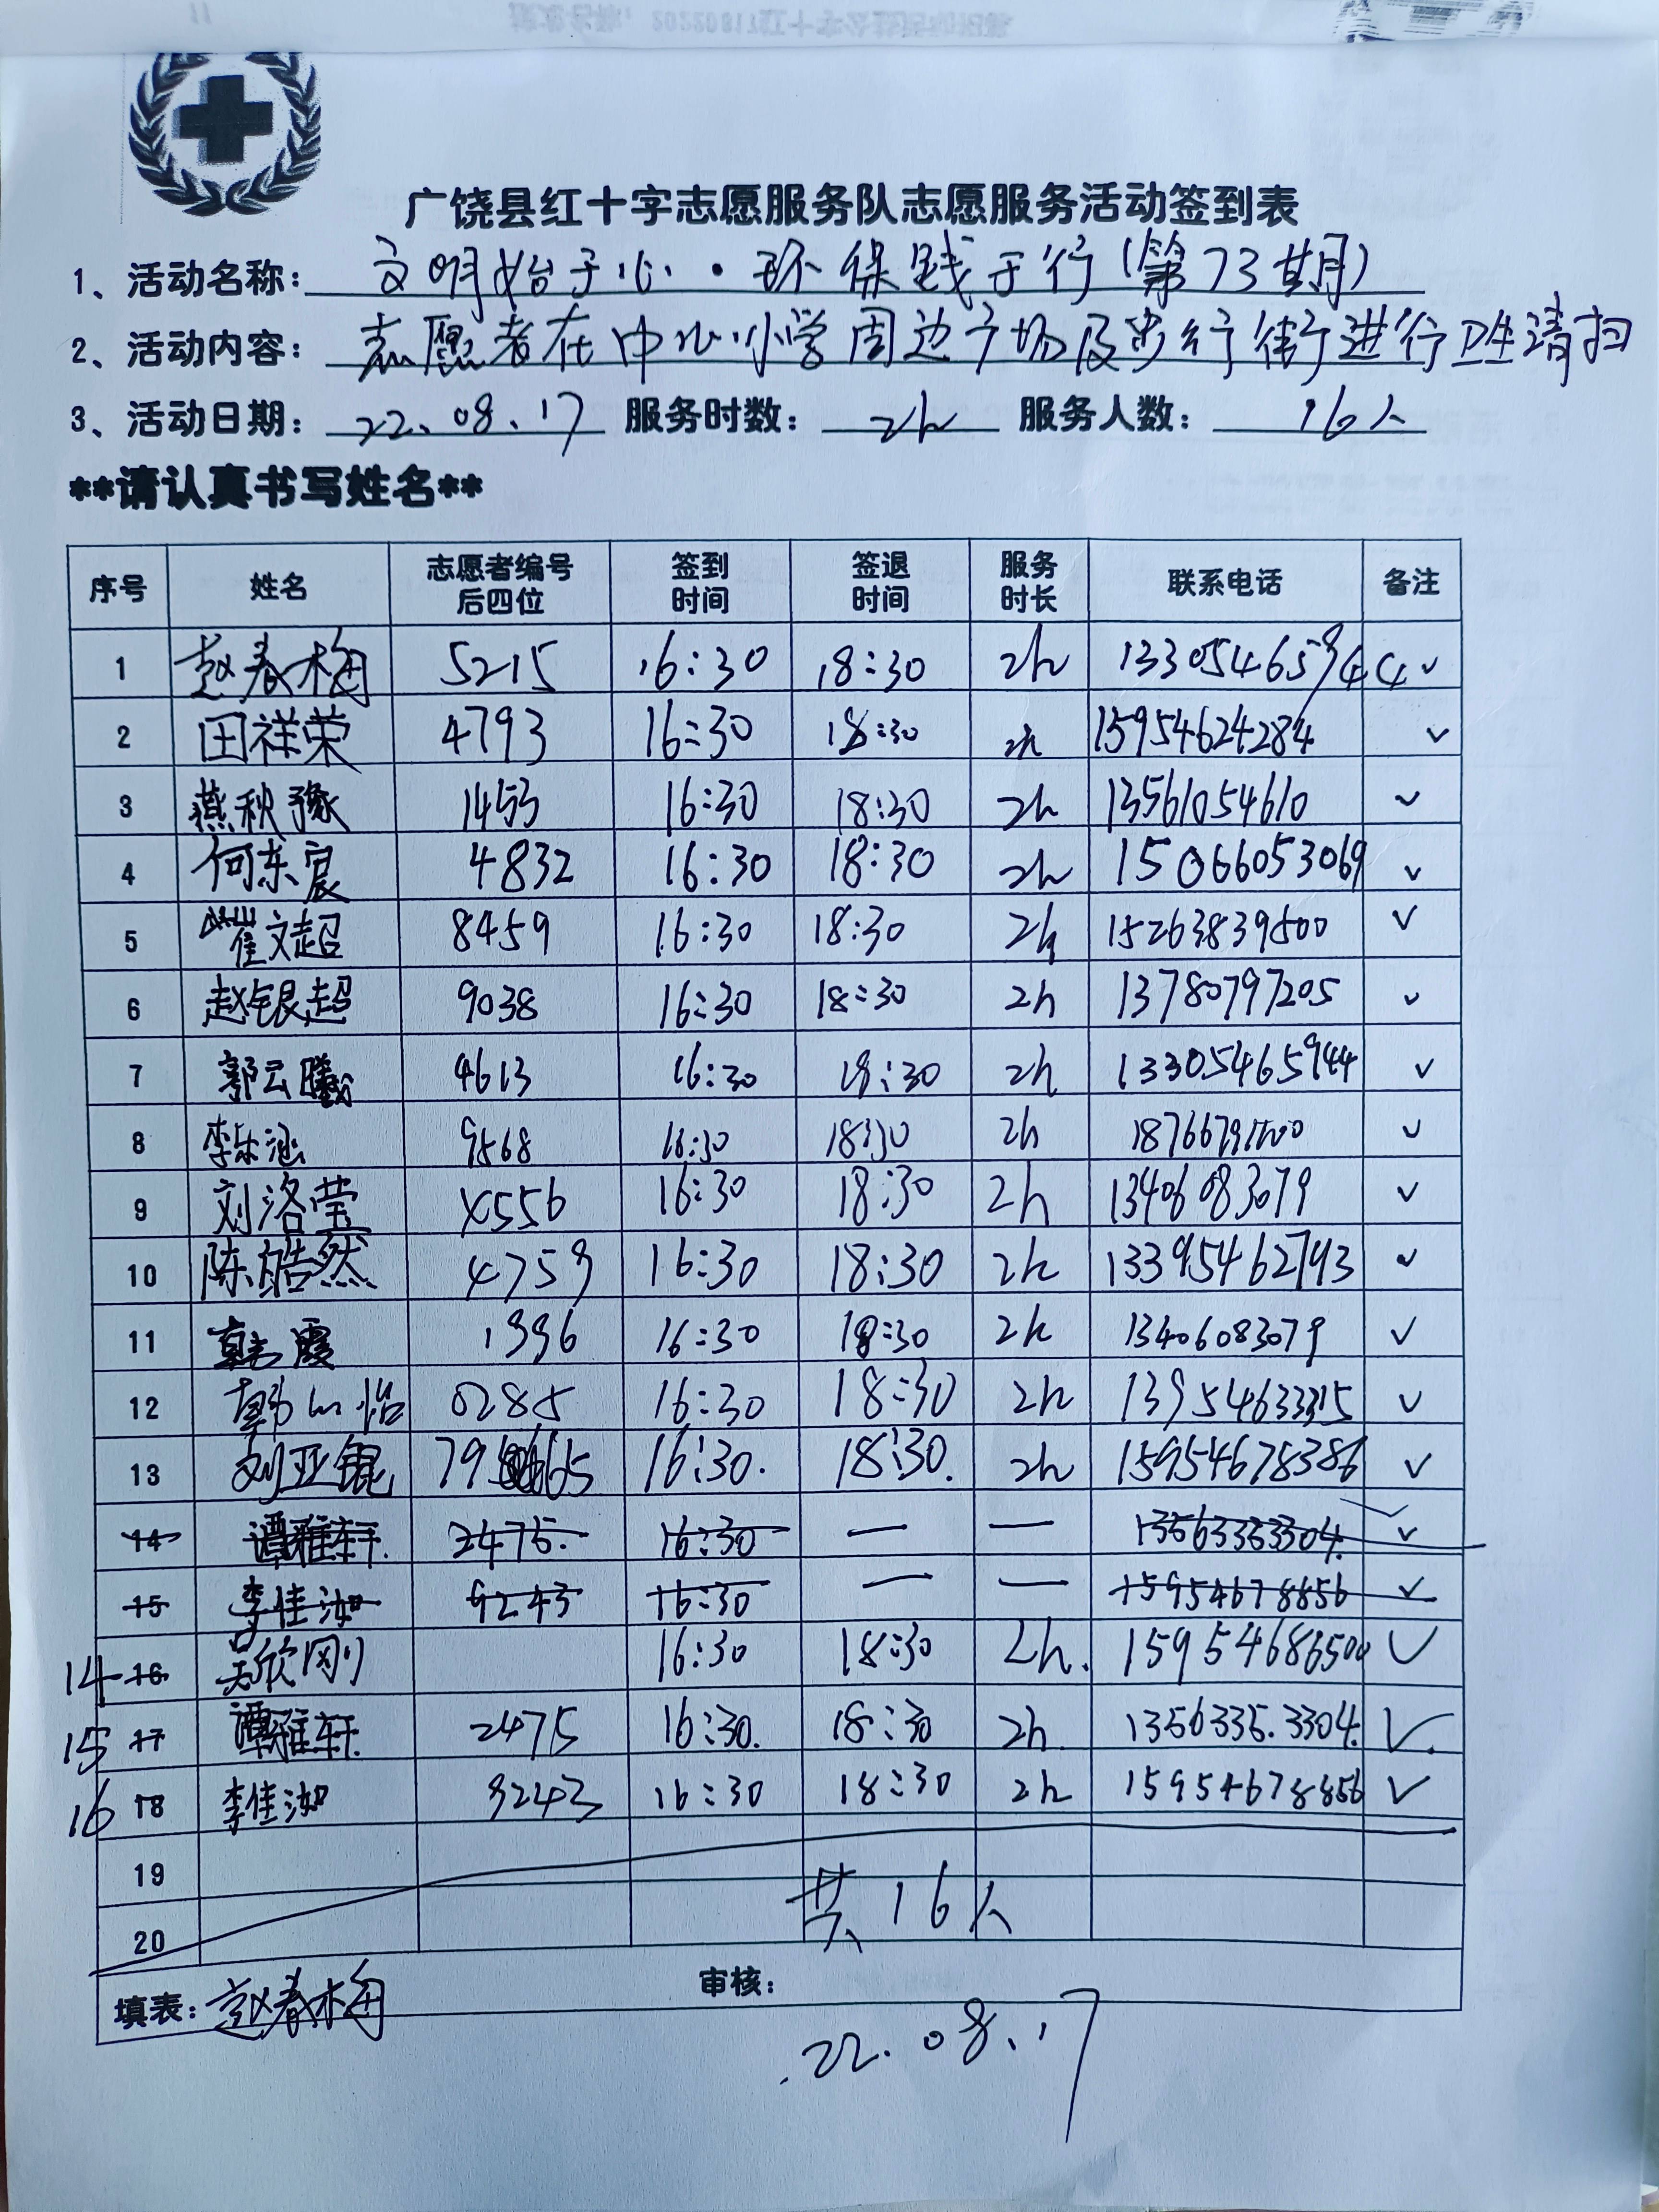 广饶县红十字志愿服务队志愿服务活动签到表
1、活动名称: 文明始于心·环保践于行(第73期)
2、活动内容: 志愿者在中心小学周边广场及步行街进行卫生清扫
3、活动日期: 22.08.17 服务时数: 2h 服务人数: 16人
**请认真书写姓名**
序号 姓名 志愿者编号后四位 签到时间 签退时间 服务时长 联系电话 备注
1 赵春梅 5215 16:30 18:30 2h 13305465944 ✓
2 田祥荣 4793 16:30 18:30 2h 15954624284 ✓
3 燕秋豫 1453 16:30 18:30 2h 13561054610 ✓
4 何东宸 4832 16:30 18:30 2h 15066053069 ✓
5 崔文超 8459 16:30 18:30 2h 15263839500 ✓
6 赵银超 9038 16:30 18:30 2h 13780797205 ✓
7 郭云曦 4613 16:30 18:30 2h 13305465944 ✓
8 李乐涵 9568 16:30 18:30 2h ✓
9 刘洛莹 4556 16:30 18:30 2h 13406083079 ✓
10 陈皓然 4759 16:30 18:30 2h 13395462793 ✓
11 韩霞 1996 16:30 18:30 2h 13406083079 ✓
12 韩心怡 0285 16:30 18:30 2h 13954633315 ✓
13 刘亚锟 16:30. 18:30. 2h 15954678386 ✓
14 谭雅轩. 2475. 16:30 — — 13563353304. ✓
15 李佳汝 9243 16:30 — — 15954678856 ✓
14 16 吴欣刚 16:30 18:30 2h. 15954686500 ✓
15 17 谭雅轩. 2475 16:30. 18:30 2h. 1356335.3304. ✓.
16 18 李佳汝 9243 16:30 18:30 2h 15954678856 ✓
19
共16人
20
填表: 赵春梅 审核:
22.08.17